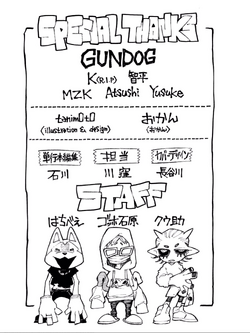 SPECIAL THANKS
GUNDOG
K(R.I.P) 智平
MZK Atsushi Yusuke
tanim0t0 おかん
(illustration & design) (おかん)
単行本編集 担当 カバーデザイン
石川 川窪 長谷川
STAFF
はちべえ ゴッホ石原 クウ助